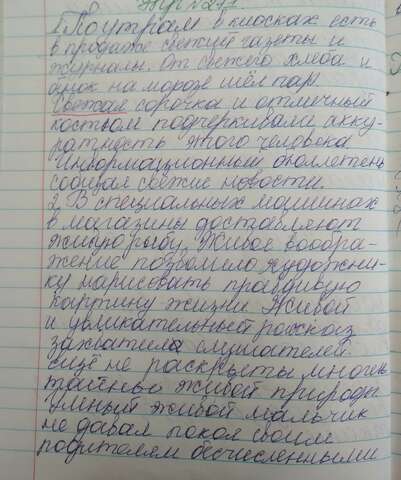 Упр №271.
1. По утрам в киосках есть
в продаже свежий газеты и
журналы. От свежего хлеба и
булок на морозе шёл пар.
Свежая сорочка и отличный
костюм подчеркивали акку-
ратность этого человека
Информационный бюллетень
сообщал свежие новости.
2. В специальных машинах
в магазины доставляют
живую рыбу. Живое вообра-
жение позволило художни-
ку нарисовать правдивую
картину жизни Живой
и увлекательный рассказ
захватила слушателей.
ещё не раскрыты многие
тайны живой природы
Умный живой мальчик
не давал покоя своим
родителям бесчисленными